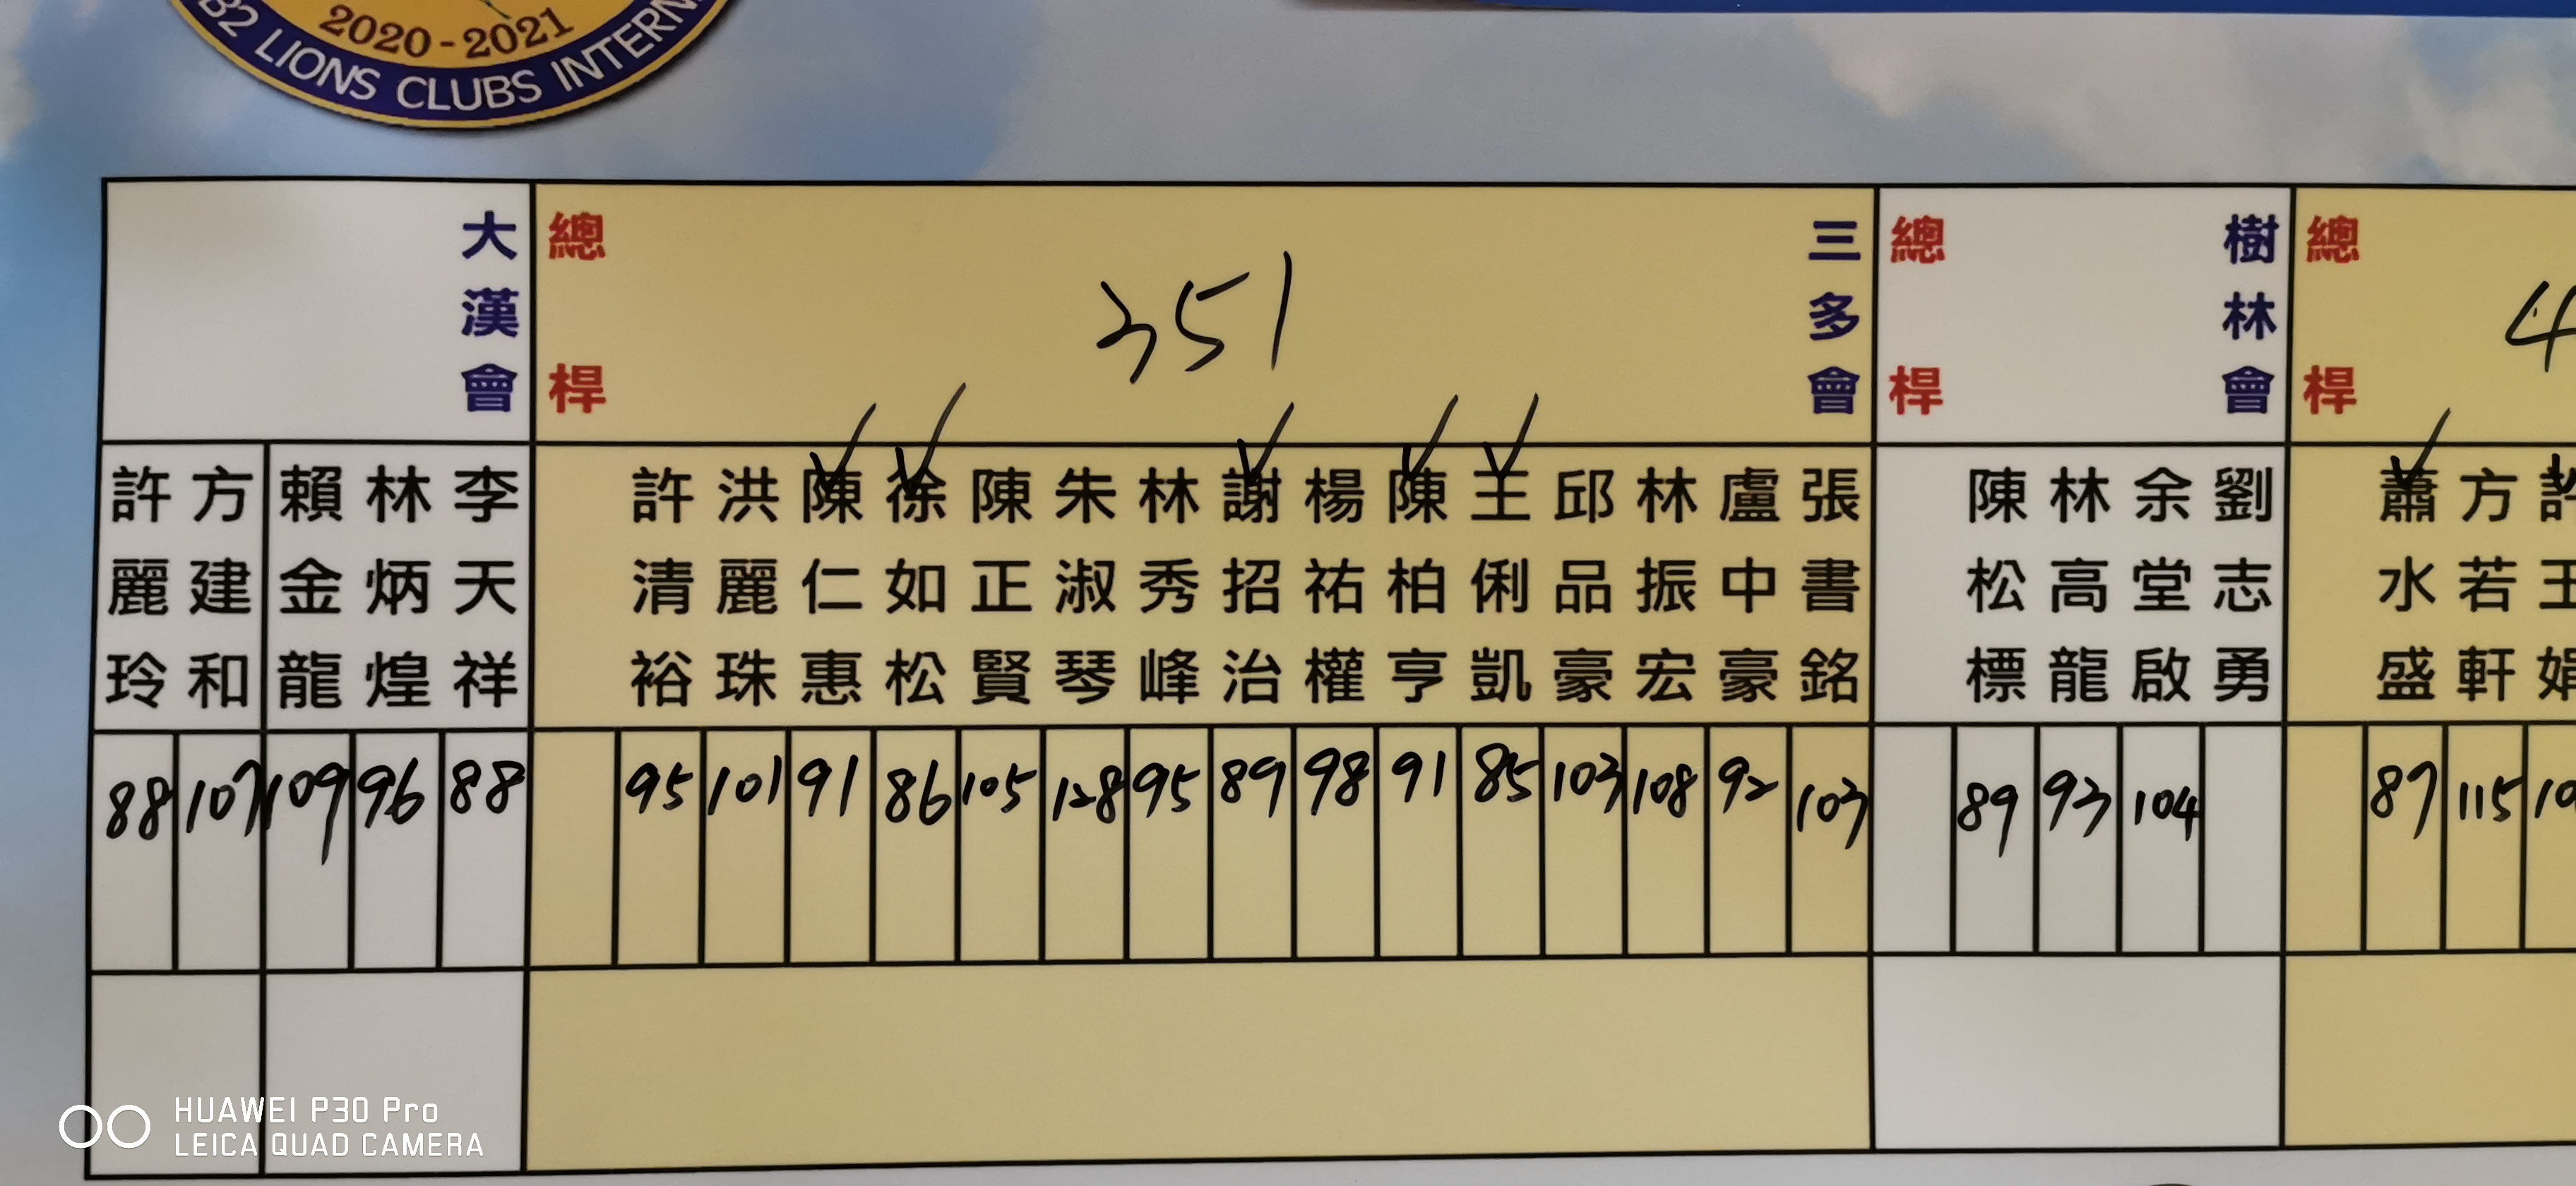 2020-2021
B2 LIONS CLUBS INTERN
總桿
蕭水盛 87
方若軒 115
樹林會
總桿
劉志勇
余堂啟 104
林高龍 93
陳松標 89
三多會
351
總桿
張書銘 103
盧中豪 92
林振宏 108
邱品豪 103
王俐凱 85
陳柏亨 91
楊祐權 98
謝招治 89
林秀峰 95
朱淑琴 128
陳正賢 105
徐如松 86
陳仁惠 91
洪麗珠 101
許清裕 95
大漢會
李天祥 88
林炳煌 96
賴金龍 109
方建和 107
許麗玲 88
HUAWEI P30 Pro
LEICA QUAD CAMERA